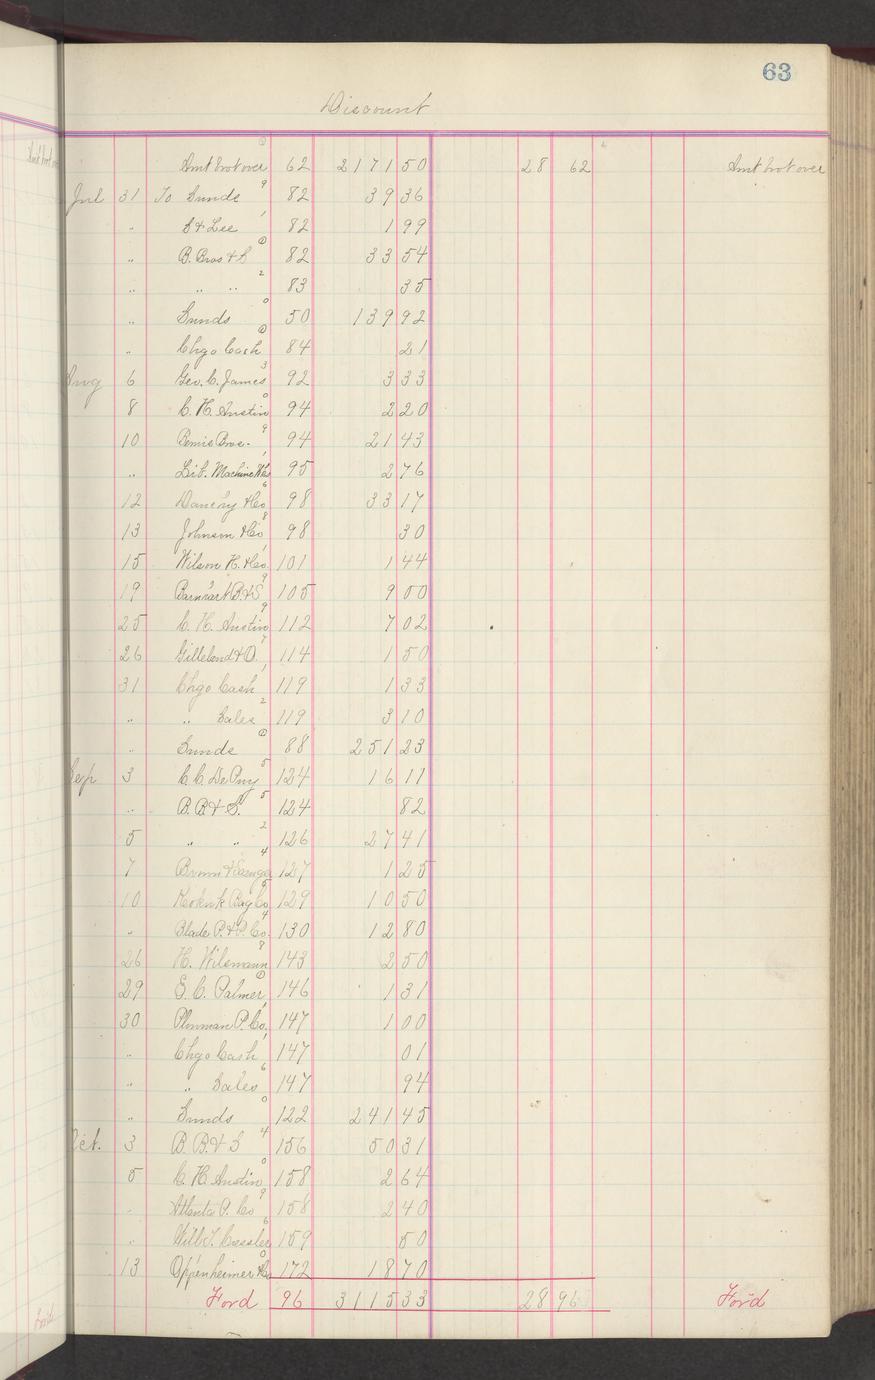 63
Discount
Amt brot over 62 2171 50 28 62 Amt brot over
Jul 31 To Sunds 9 82 39 36
" S & Lee 1 82 1 99
" B. Bros & S 82 33 54
" " " 2 83 35
" Sunds 0 50 139 92
" Chgo Cash 84 21
Aug 6 Geo. C. James 3 92 3 33
8 C. H. Austin 0 94 2 20
10 Bemis Bros. 9 94 21 43
" Lib. Machine Wks 1 95 2 76
12 & Co 6 98 33 17
13 Johnson & Co 8 98 30
15 Wilson H. & Co. 1 101 1 44
19 B. & S 9 105 9 00
25 C. H. Austin 9 112 7 02
26 & O. 7 114 1 50
31 Chgo Cash 1 119 1 33
" " Sales 2 119 3 10
" Sunds 88 251 23
Sep 3 C. C. DePuy 5 124 16 11
" B. B & S. 5 124 82
5 " " 2 126 27 41
7 4 127 1 25
10 Keokuk Bag Co 5 129 10 50
" Blade P. & P. Co. 4 130 12 80
26 H. Wilsmann 8 143 2 50
29 E. C. Palmer 146 1 31
30 P. Co, 1 147 1 00
" Chgo Cash 1 147 01
" " Sales 6 147 94
" Sunds 0 122 241 45
Oct. 3 B. B. & S 4 156 50 31
5 C. H. Austin 0 158 2 64
" Atlanta P. Co 9 158 2 40
" Will T. 6 159 50
13 Oppenheimer & Co 0 172 18 70
Ford 96 3115 33 28 96 Ford